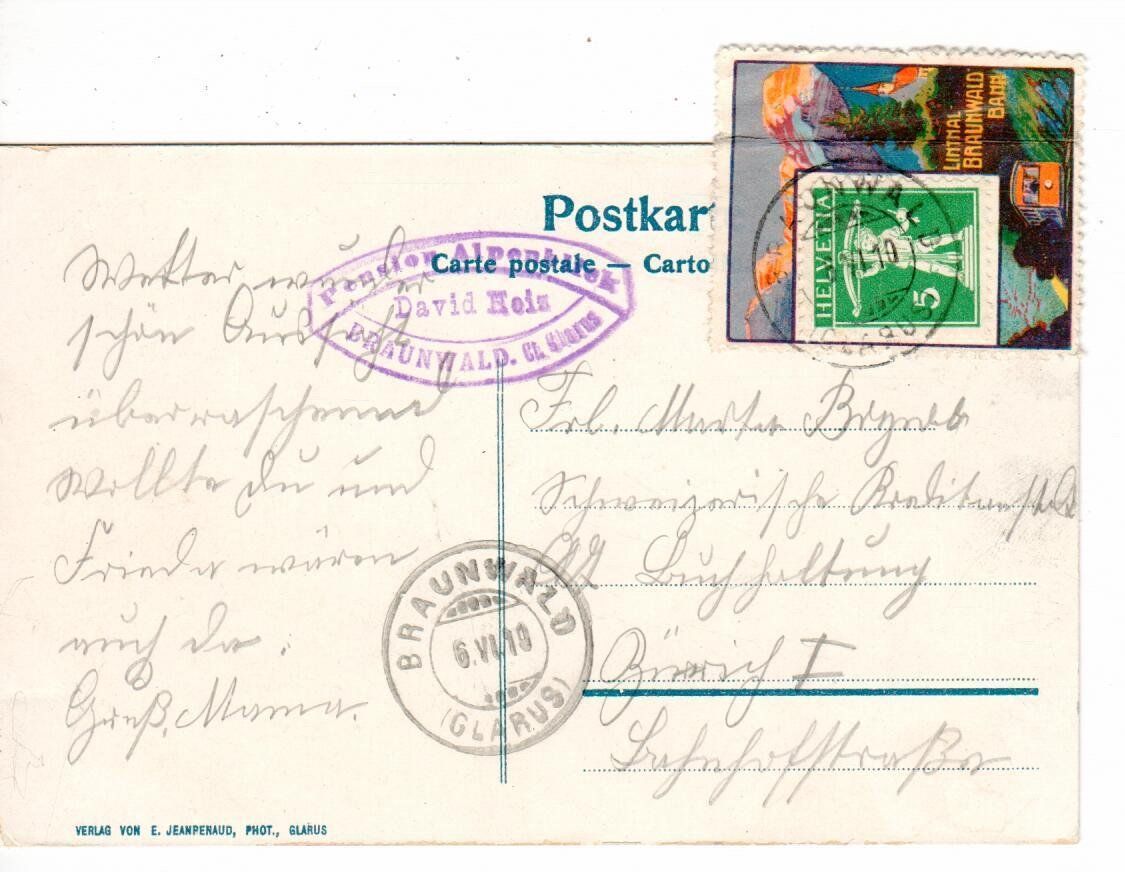 LINTHAL
BRAUNWALD
BAHN
HELVETIA
5
BRAUNWALD
VI.10
(GLARUS)
Postkar
Carte postale — Carto
Pension Alpenblick
David Heiz
BRAUNWALD. Ct. Glarus
Wetter
schön Aussicht
überraschend
Wollte du und
Frieda wären
auch da.
Gruß, Mama.
Frl. Martha
Schweizerische Kreditanstalt
Buchhaltung
Zürich I
Bahnhofstraße
BRAUNWALD
6.VI.10
(GLARUS)
VERLAG VON E. JEANPENAUD, PHOT., GLARUS